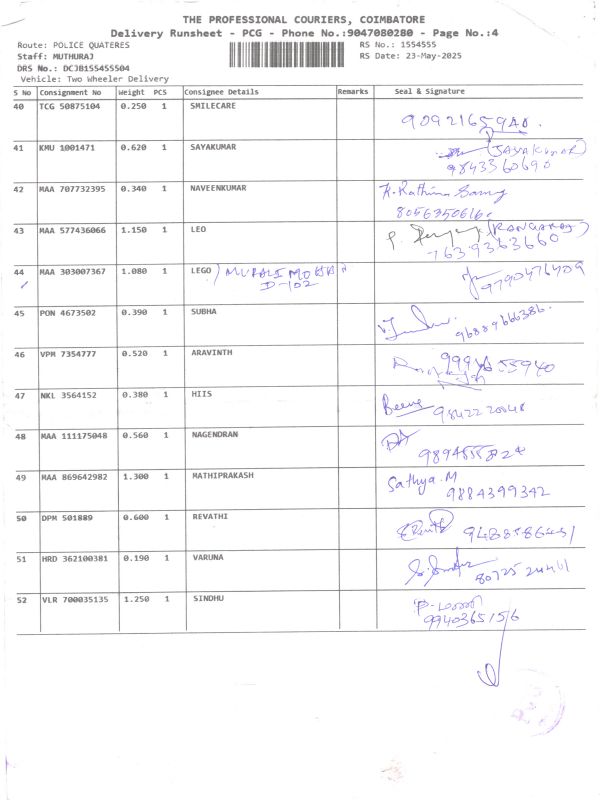 THE PROFESSIONAL COURIERS, COIMBATORE
Delivery Runsheet - PCG - Phone No.:9047080280 - Page No.:4
Route: POLICE QUATERES RS No.: 1554555
Staff: MUTHURAJ RS Date: 23-May-2025
DRS No.: DCJB155455504
Vehicle: Two Wheeler Delivery
S No Consignment No Weight PCS Consignee Details Remarks Seal & Signature
40 TCG 50875104 0.250 1 SMILECARE
9092165940.
41 KMU 1001471 0.620 1 SAYAKUMAR (JAYAKUMAR)
9843360690
42 MAA 707732395 0.340 1 NAVEENKUMAR K. Rathina Samy
8056350616
43 MAA 577436066 1.150 1 LEO (RANGARAJ)
7639363660
44 MAA 303007367 1.080 1 LEGO) MURALI
D-102
9790476409
45 PON 4673502 0.390 1 SUBHA
96889666386.
46 VPM 7354777 0.520 1 ARAVINTH
55940
47 NKL 3564152 0.380 1 HIIS
9842220048
48 MAA 111175048 0.560 1 NAGENDRAN
49 MAA 869642982 1.300 1 MATHIPRAKASH Sathya.M
9884399342
50 DPM 501889 0.600 1 REVATHI
51 HRD 362100381 0.190 1 VARUNA
52 VLR 700035135 1.250 1 SINDHU
9940365156